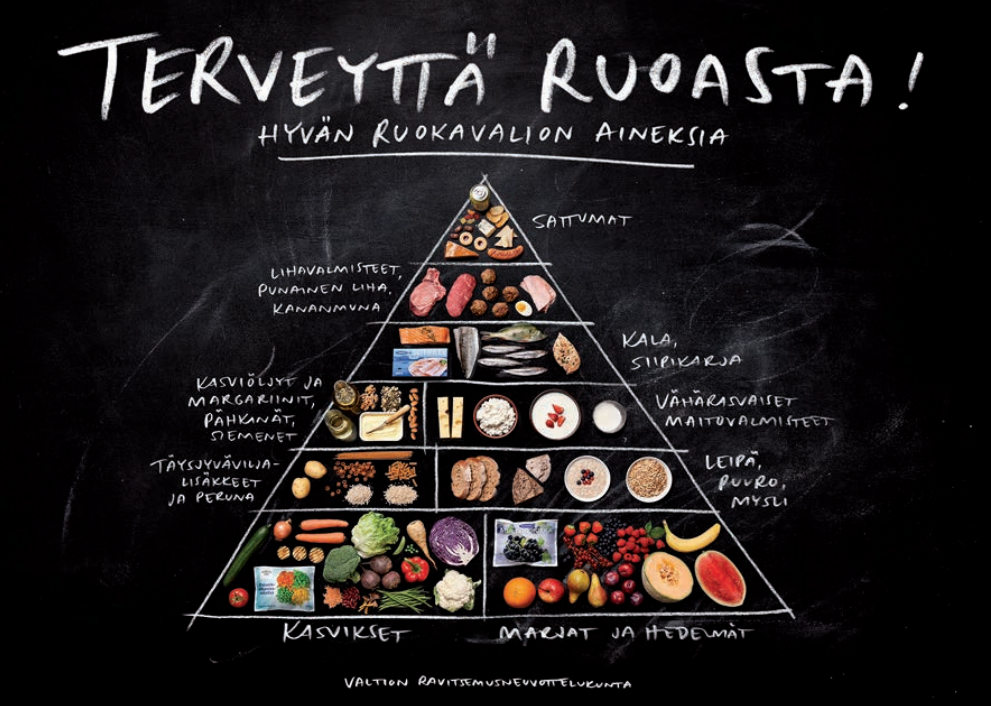 TERVEYTTÄ RUOASTA!
HYVÄN RUOKAVALION AINEKSIA
SATTUMAT
LIHAVALMISTEET,
PUNAINEN LIHA,
KANANMUNA
KALA,
SIIPIKARJA
KASVIÖLJYT JA
MARGARIINIT,
PÄHKINÄT,
SIEMENET
VÄHÄRASVAISET
MAITOVALMISTEET
TÄYSJYVÄVILJA-
LISÄKKEET
JA PERUNA
LEIPÄ,
PUURO,
MYSLI
KASVIKSET
MARJAT JA HEDELMÄT
VALTION RAVITSEMUSNEUVOTTELUKUNTA